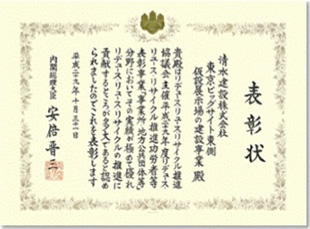 表彰状
清水建設株式会社
東京ビッグサイト東側
仮設展示場の建設事業 殿
貴殿はリデュース・リユース・リサイクル推進
協議会主催平成二十九年度リデュース・
リユース・リサイクル推進功労者等
表彰事業「事業所・地方公共団体等」
分野においてその実績が極めて優れ
リデュース・リユース・リサイクルの推進に
貢献するところが多大であると認め
られましたのでこれを表彰します
平成二十九年十月三十一日
内閣総理大臣 安倍晋三